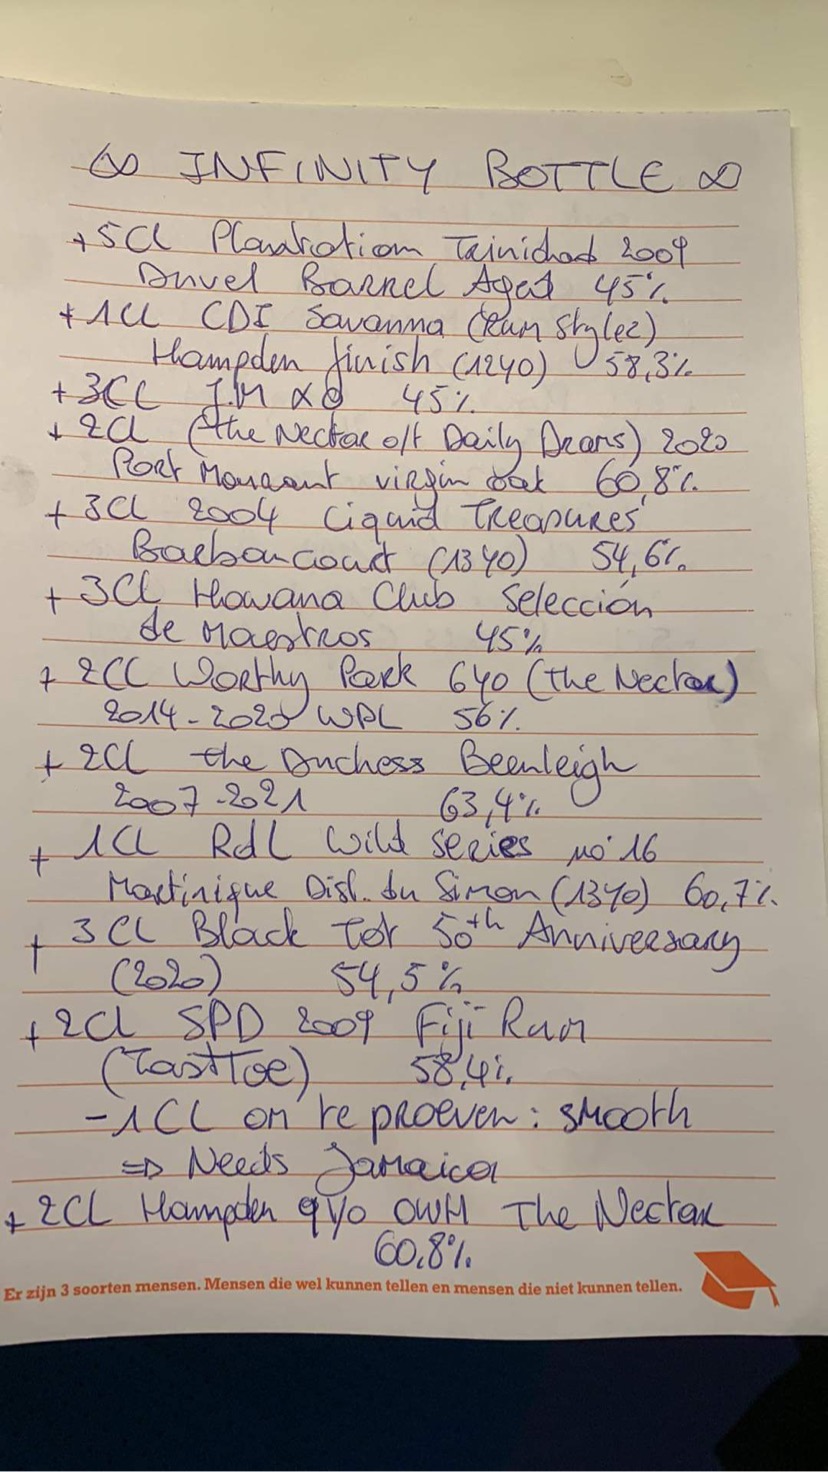 ∞ INFINITY BOTTLE ∞
+5Cl Plantation Trinidad 2009
Duvel Barrel Aged 45%
+1Cl CDI Savanna (Rum Stylez)
Hampden finish (12YO) 58,3%
+3Cl J.M XO 45%
+2Cl (the Nectar o/t Daily Drams) 2020
Port Mourant virgin oak 60,8%
+3Cl 2004 Liquid Treasures
Barbancourt (13YO) 54,6%
+3Cl Havana Club Selección
de Maestros 45%
+2Cl Worthy Park 6YO (the Nectar)
2014-2020 WPL 56%
+2Cl the Duchess Beenleigh
2007-2021 63,4%
+1Cl RdL Wild Series no 16
Martinique Dist. du Simon (13YO) 60,7%
+3Cl Black Tot 50th Anniversary
(2020) 54,5%
+2Cl SPD 2009 Fiji Rum
(TastToe) 58,4%
-1CL om te proeven: smooth
=> Needs Jamaica
+2CL Hampden 9Y/o OWH The Nectar
60.8%
Er zijn 3 soorten mensen. Mensen die wel kunnen tellen en mensen die niet kunnen tellen.